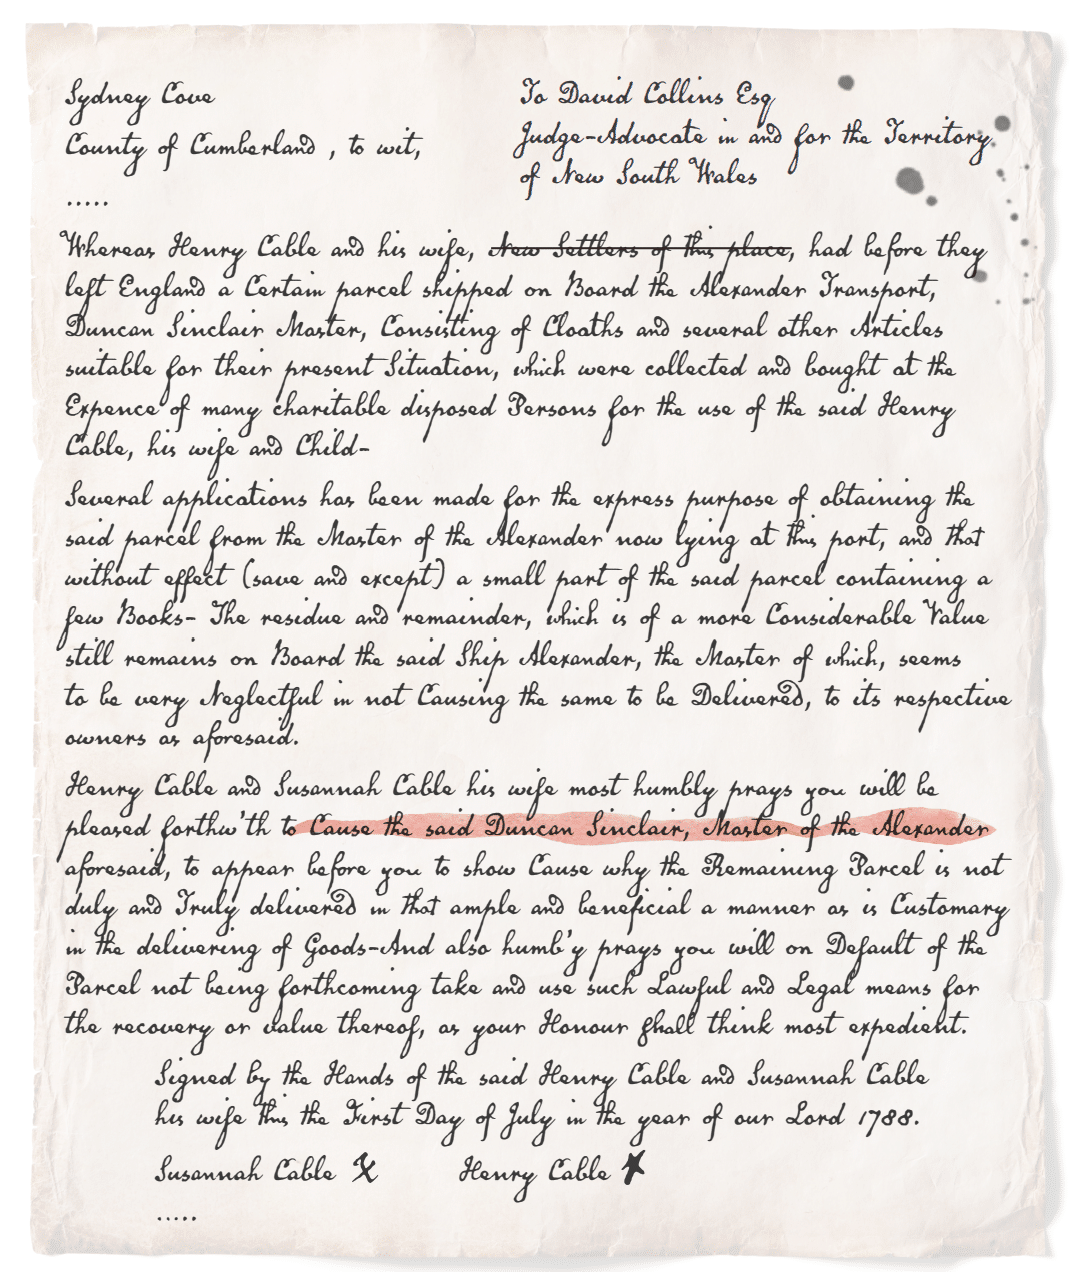 Sydney Cove
County of Cumberland , to wit,
.....
To David Collins Esq
Judge-Advocate in and for the Territory
of New South Wales
Whereas Henry Cable and his wife, New Settlers of this place, had before they
left England a Certain parcel shipped on Board the Alexander Transport,
Duncan Sinclair Master, Consisting of Cloaths and several other Articles
suitable for their present Situation, which were collected and bought at the
Expence of many charitable disposed Persons for the use of the said Henry
Cable, his wife and Child-
Several applications has been made for the express purpose of obtaining the
said parcel from the Master of the Alexander now lying at this port, and that
without effect (save and except) a small part of the said parcel containing a
few Books- The residue and remainder, which is of a more Considerable Value
still remains on Board the said Ship Alexander, the Master of which, seems
to be very Neglectful in not Causing the same to be Delivered, to its respective
owners as aforesaid.
Henry Cable and Susannah Cable his wife most humbly prays you will be
pleased forthw'th to Cause the said Duncan Sinclair, Master of the Alexander
aforesaid, to appear before you to show Cause why the Remaining Parcel is not
duly and Truly delivered in that ample and beneficial a manner as is Customary
in the delivering of Goods-And also humb'y prays you will on Default of the
Parcel not being forthcoming take and use such Lawful and Legal means for
the recovery or value thereof, as your Honour shall think most expedient.
Signed by the Hands of the said Henry Cable and Susannah Cable
his wife this the First Day of July in the year of our Lord 1788.
Susannah Cable X Henry Cable X
.....